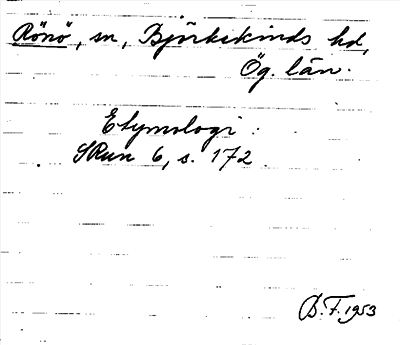 Rönö, sn, Björkekinds hd,
Ög. län.
Etymologi:
SRun 6, s. 172
B.F. 1953